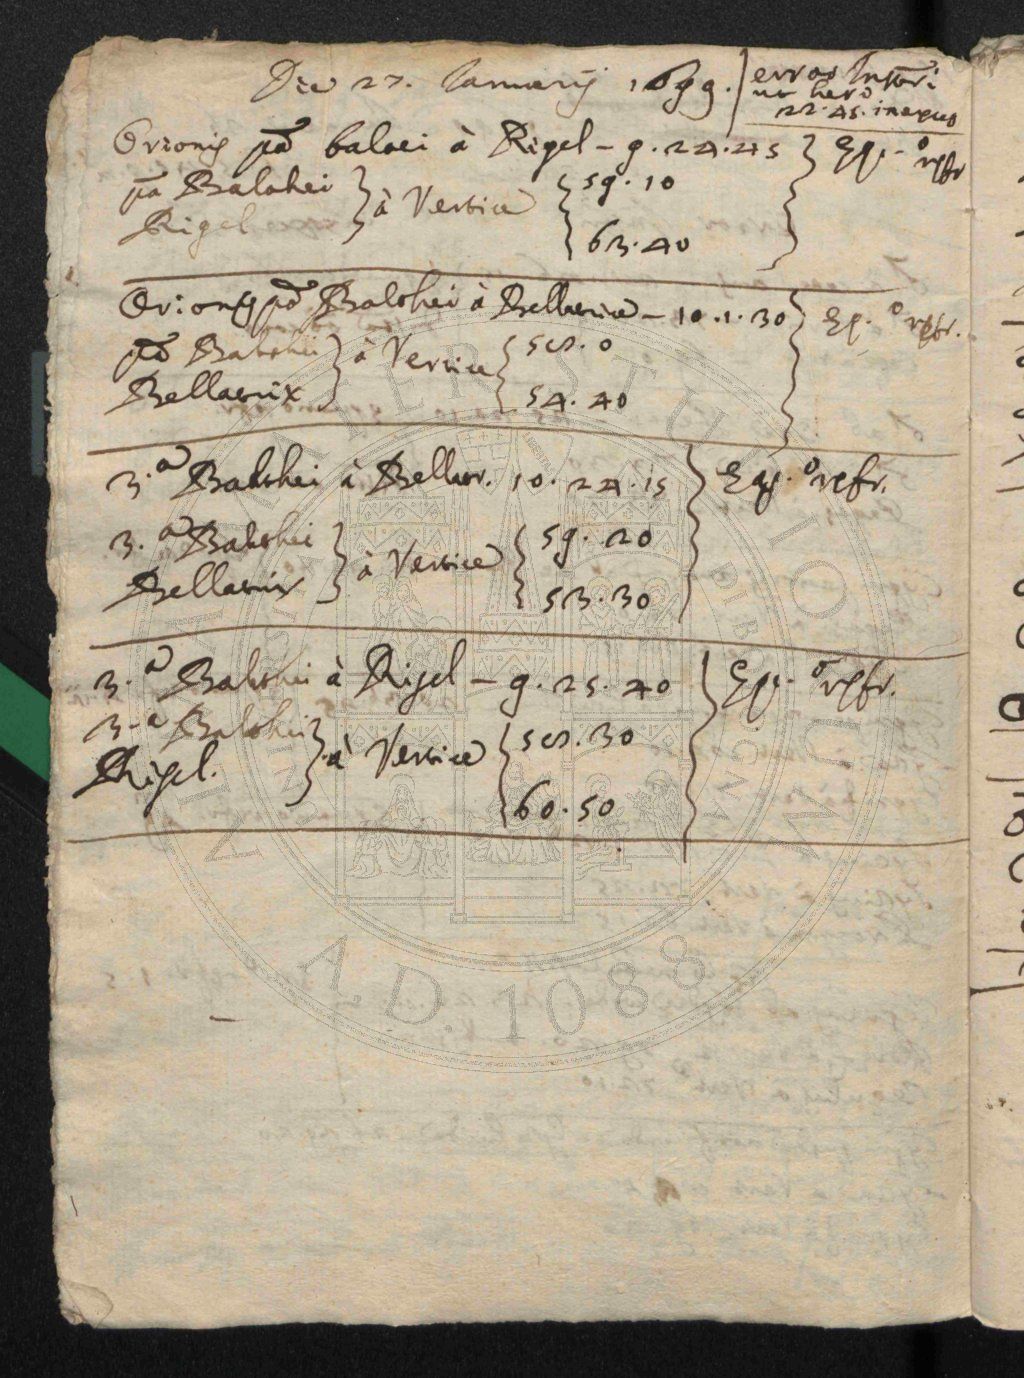 Die 27. Januarij 1699.
error Instri
ut heri
22.45. in excess
Orionis pa balthei à Rigel – 9.24.45 Ep. 0 rpfr
pa Balthei
Rigel
à Vertice
59.10
63.40
Orionis pa Balthei à Bellatrice – 10.1.30 Ep. 0 rpfr.
pa Balthei
Bellatrix
à Vertice
58.0
54.40
3.a Balthei à Bellatr. 10.24.15 Ep. 0 rpfr.
3.a Balthei
Bellatrix
à Vertice
59.20
53.30
3.a Balthei à Rigel – 9.25.40 Ep. 0 rpfr.
3.a Balthei
Rigel.
à Vertice
58.30
60.50
A.D. 1088